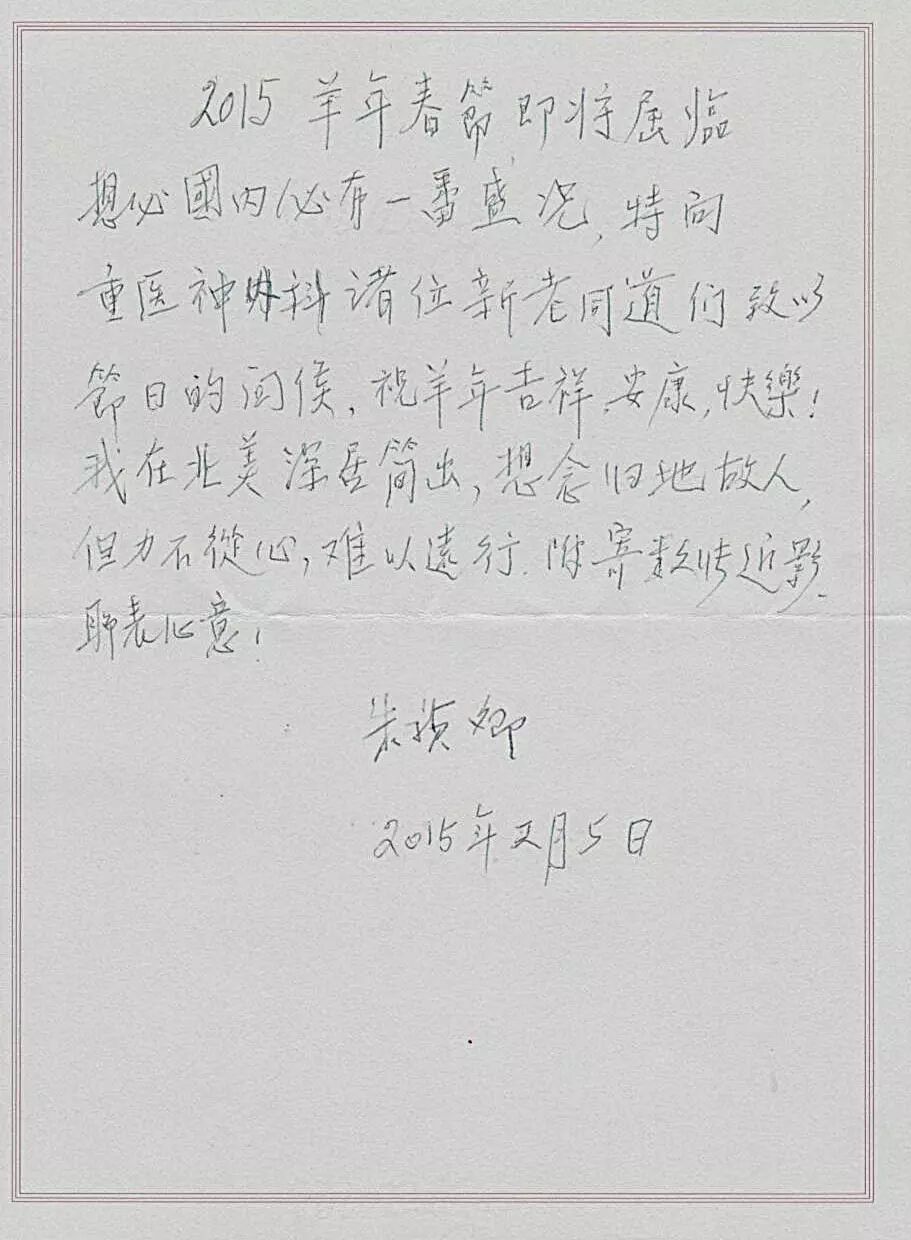 2015 羊年春節,即将届临
想必國内必有一番盛况,特向
重医神内科诸位新老同道们致以
節日的问侯,祝羊年吉祥,安康,快樂!
我在北美深居简出,想念旧地故人,
但力不從心,难以遠行.附寄数张近影,
聊表心意!
朱祯卿
2015年2月5日